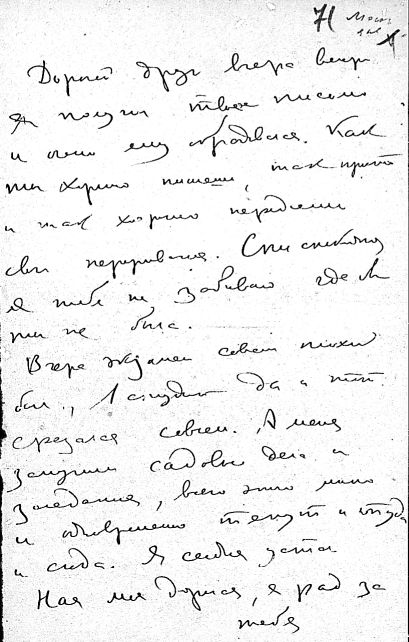 71
Дорогой друг вчера вечер
я получил твое письмо
и очень ему обрадовался. Как
ты хорошо пишешь, так просто
и так хорошо передаешь
свои переживания. Спи спокойно
я тебя не забываю где б
ты не была.
Вчера экзамен совсем плохой
был, 1 студент да и тот
срезался совсем. А меня
замучили садовые дела и
заседания, всего этого много
и одновременно тянут и туда
и сюда. Я сегодня устал
Ная моя дорогая, я рад за
тебя